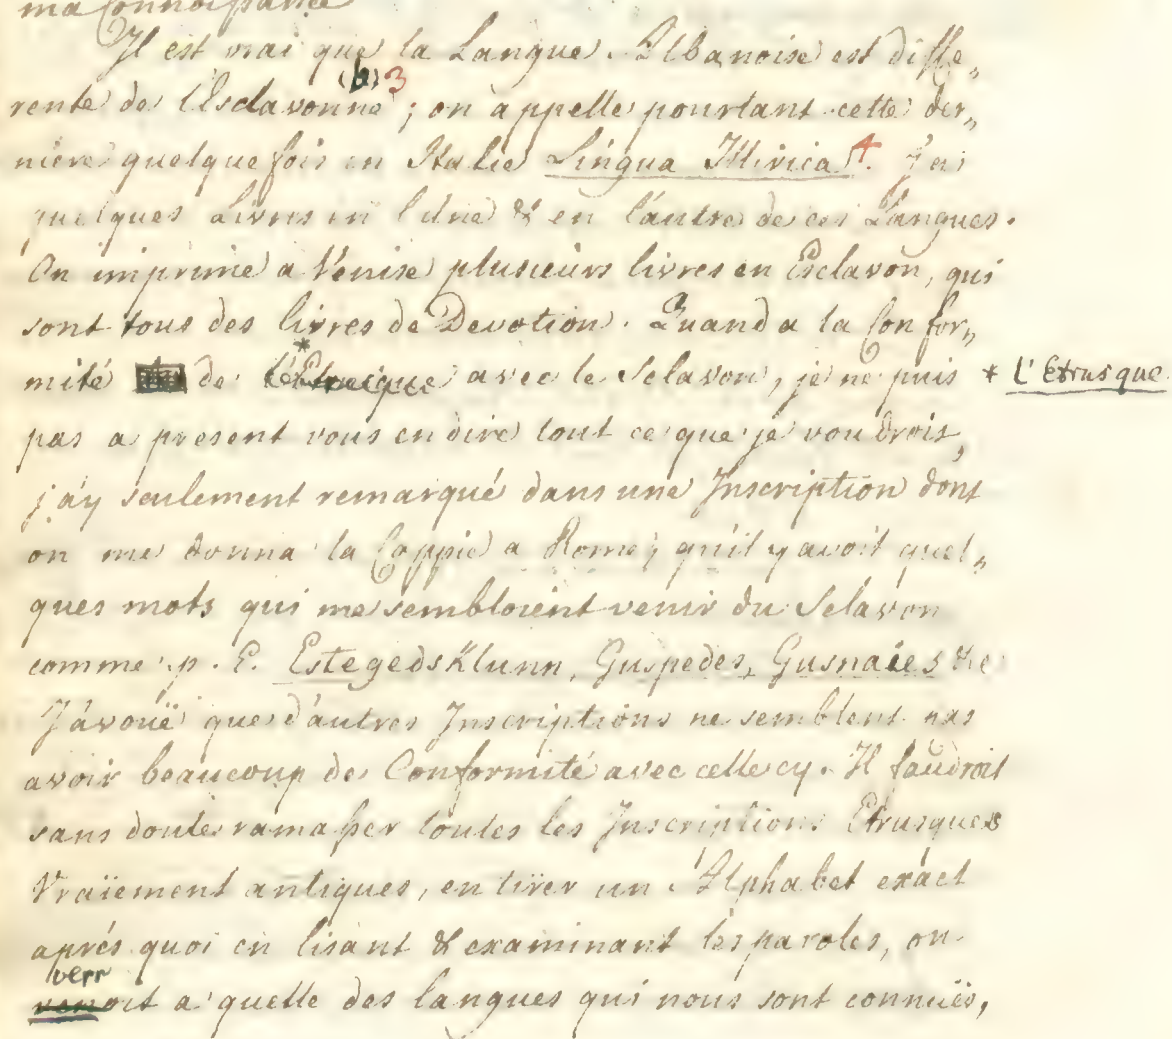 ma Connoissance
Il est vrai que la Langue Albanoise est diffe„
rente de l'Esclavonne (b) 3 ; on appelle pourtant cette der„
niere quelque fois en Italie Lingua Illirica 4. J'ai
quelques Livres en l'une & en l'autre de ces Langues.
On imprime a Venise plusieurs livres en Esclavon, qui
sont tous des livres de Devotion. Quand a la Confor„
mité de l'Etruique * avec le Sclavon, je ne puis * L'Etrusque
pas a present vous en dire tout ce que je voudrois,
j'ay seulement remarqué dans une Inscription dont
on me donna la Coppie a Rome, qu'il y avoit quel„
ques mots qui me sembloient venir du Sclavon
comme p. E. EstegedsKlunn, Guspedes, Gusnaies &c
J'avoüe que d'autres Inscriptions ne semblent pas
avoir beaucoup de Conformité avec celle cy. Il faudroit
sans doute ramasser toutes les Inscriptions Etrusques
Vraïement antiques, en tirer un Alphabet exáct
aprés quoi en lisant & examinant les paroles, on
verroit a quelle des langues qui nous sont connuës,